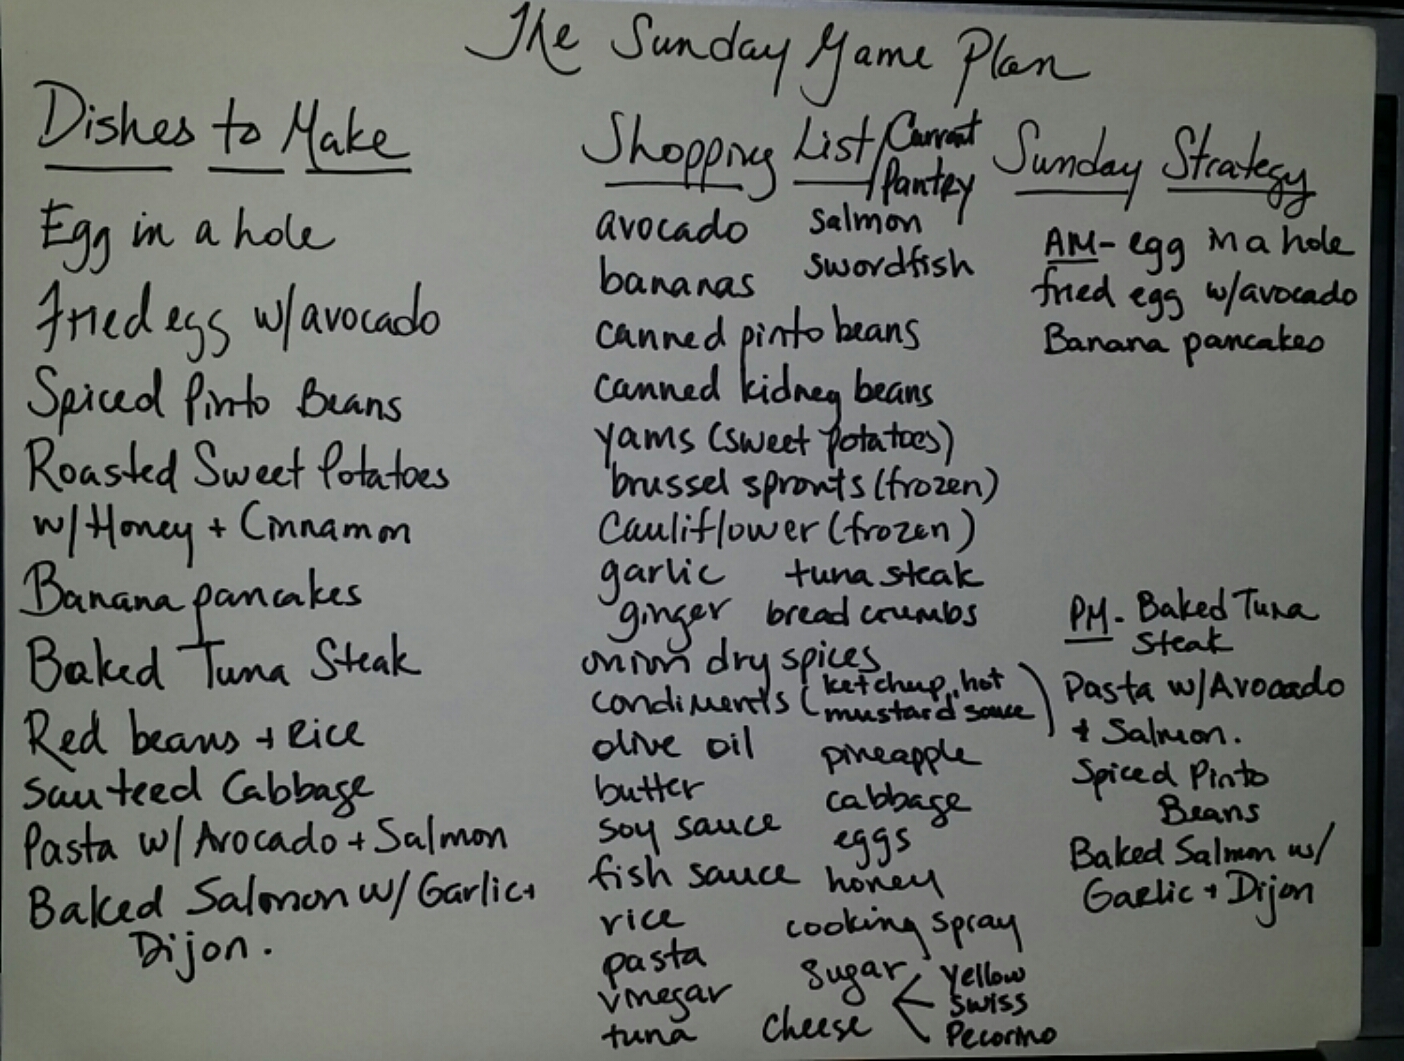 The Sunday Game Plan
Dishes to Make
Egg in a hole
Fried egg w/avocado
Spiced Pinto Beans
Roasted Sweet Potatoes
w/Honey + Cinnamon
Banana pancakes
Baked Tuna Steak
Red beans + Rice
Sauteed Cabbage
Pasta w/ Avocado + Salmon
Baked Salmon w/ Garlic +
Dijon.
Shopping List/Current
Pantry
avocado salmon
bananas swordfish
canned pinto beans
canned kidney beans
yams (sweet potatoes)
brussel sprouts (frozen)
Cauliflower (frozen)
garlic tuna steak
ginger bread crumbs
onion dry spices
condiments (ketchup, hot
mustard sauce)
olive oil pineapple
butter cabbage
soy sauce eggs
fish sauce honey
rice cooking spray
pasta sugar
vinegar
tuna Cheese
Yellow
Swiss
Pecorino
Sunday Strategy
AM- egg in a hole
fried egg w/avocado
Banana pancakes
PM- Baked Tuna
Steak
Pasta w/Avocado
+ Salmon.
Spiced Pinto
Beans
Baked Salmon w/
Garlic + Dijon